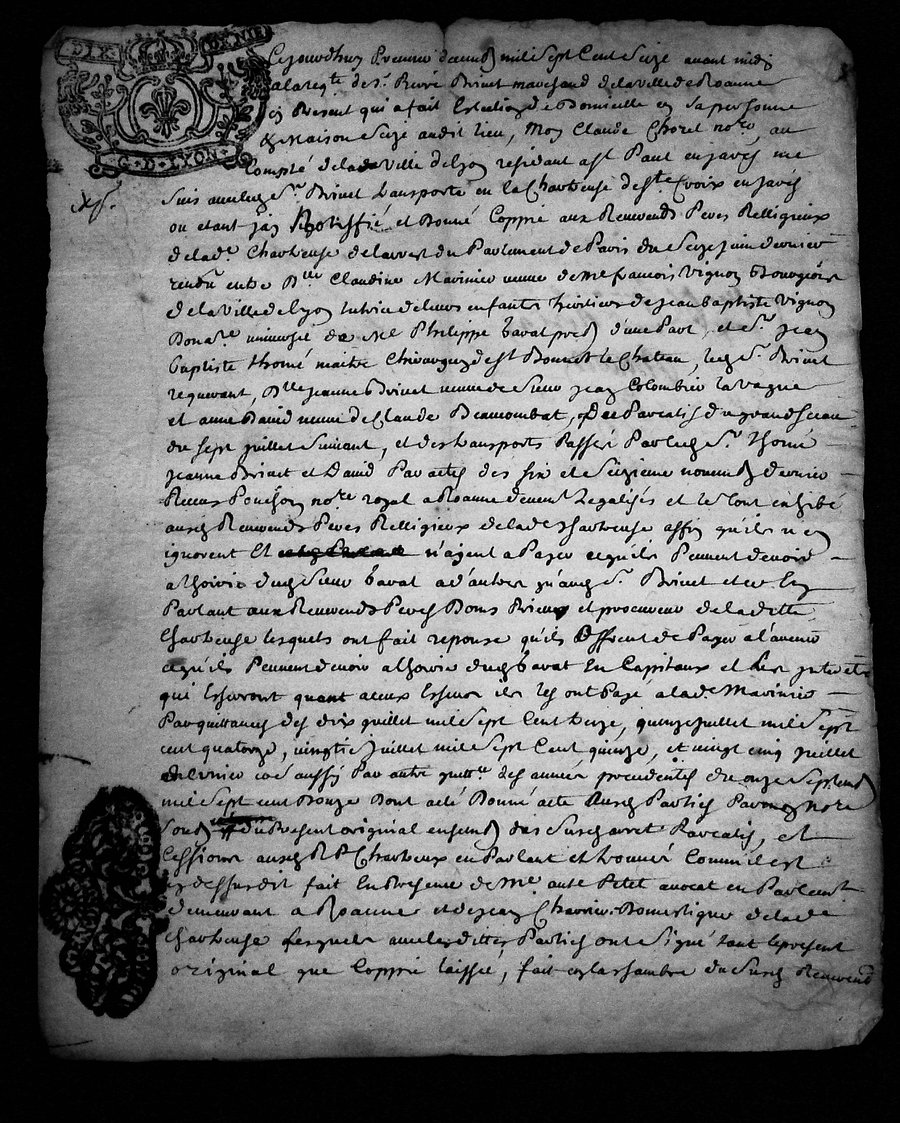 DIX DENIE
G·D·LYON
Cejourdhuy Premier decemb mil sept Cent Seize avant midy
ala reqte de sr Brivet marchand delaville de Roanne
cy Present qui a fait Election de Domicille en sa personne
& Maison size audit lieu, Moy Claude Chorel nore, au
Compté delade ville de lyon residant a st Paul en jarés me
suis avecled sr Brivet transporté en la Chartreuse de Ste Croix en jarés
ou etant jay Nottiffié et Donné Coppie aux Reverends Peres Relligieux
delade Chartreuse delarrest du Parlement de Paris du seize juin dernier
rendu entre Dlle Claudine Marinier veuve de Me francois Vignon Bourgeois
delaville de lyon tutrice deleurs enfants heritiers de jean baptiste Vignon
Philippe bavat d'une Part, et sr jean
baptiste thomé maitre Chirurgien de st Bonnet le Chateau, led sr Brivet
requerant, Dlle jeanne Brivet veuve de sieur jean Colombier lavague
et anne David veuve de Claude Beaucombat, du grand sceau
du sept juillet suivant, et des transports Passés Par lesd sr thomé
jeanne Brivet et David Par actes des six et seizieme novemb dernier
Recus Ponchon nore royal a Roanne dement Legalisés et le tout exhibé
ausd Reverends Peres Relligieux delade Chartreuse affin qu'ils n'en
ignorent Et n'ayent a Payer cequils Peuvent devoir
alhoirie dud sieur bavat a d'autres qu'aud sr Brivet et ce En
Parlant aux Reverends Peres Doms Prieur et procureur deladitte
Chartreuse lesquels ont fait reponse qu'ils Offrent de Payer alavenir
cequils Peuvent devoir alhoirie dud bavat En Capitaux et
qui Escheront quant aceux Escheus ils les ont Payé alade Marinier
Par quittances des dix juillet mil sept Cent treize, quinze juillet mil sept
cent quatorze, vingtie juillet mil sept Cent quinze, et vingt cinq juillet
dernier comme aussy Par autre quittce des années precedentes du onze septemb
mil sept cent Douze Dont acte Donné acte Ausd Parties Par moy nore
soub du Present original ensemb des susd arret Pareatis, et
Cessions ausd R P Chartreux en Parlant et trouvés Comme est
cy dessus dit fait En Presence de Me Petet avocat en Parlemt
demeurant a Roanne et de jean Charrier Domestique delade
Chartreuse Lesquels avec lesdittes Parties ont signé tant lepresent
original que Coppie laissée, fait en lachambre du susd Reverend